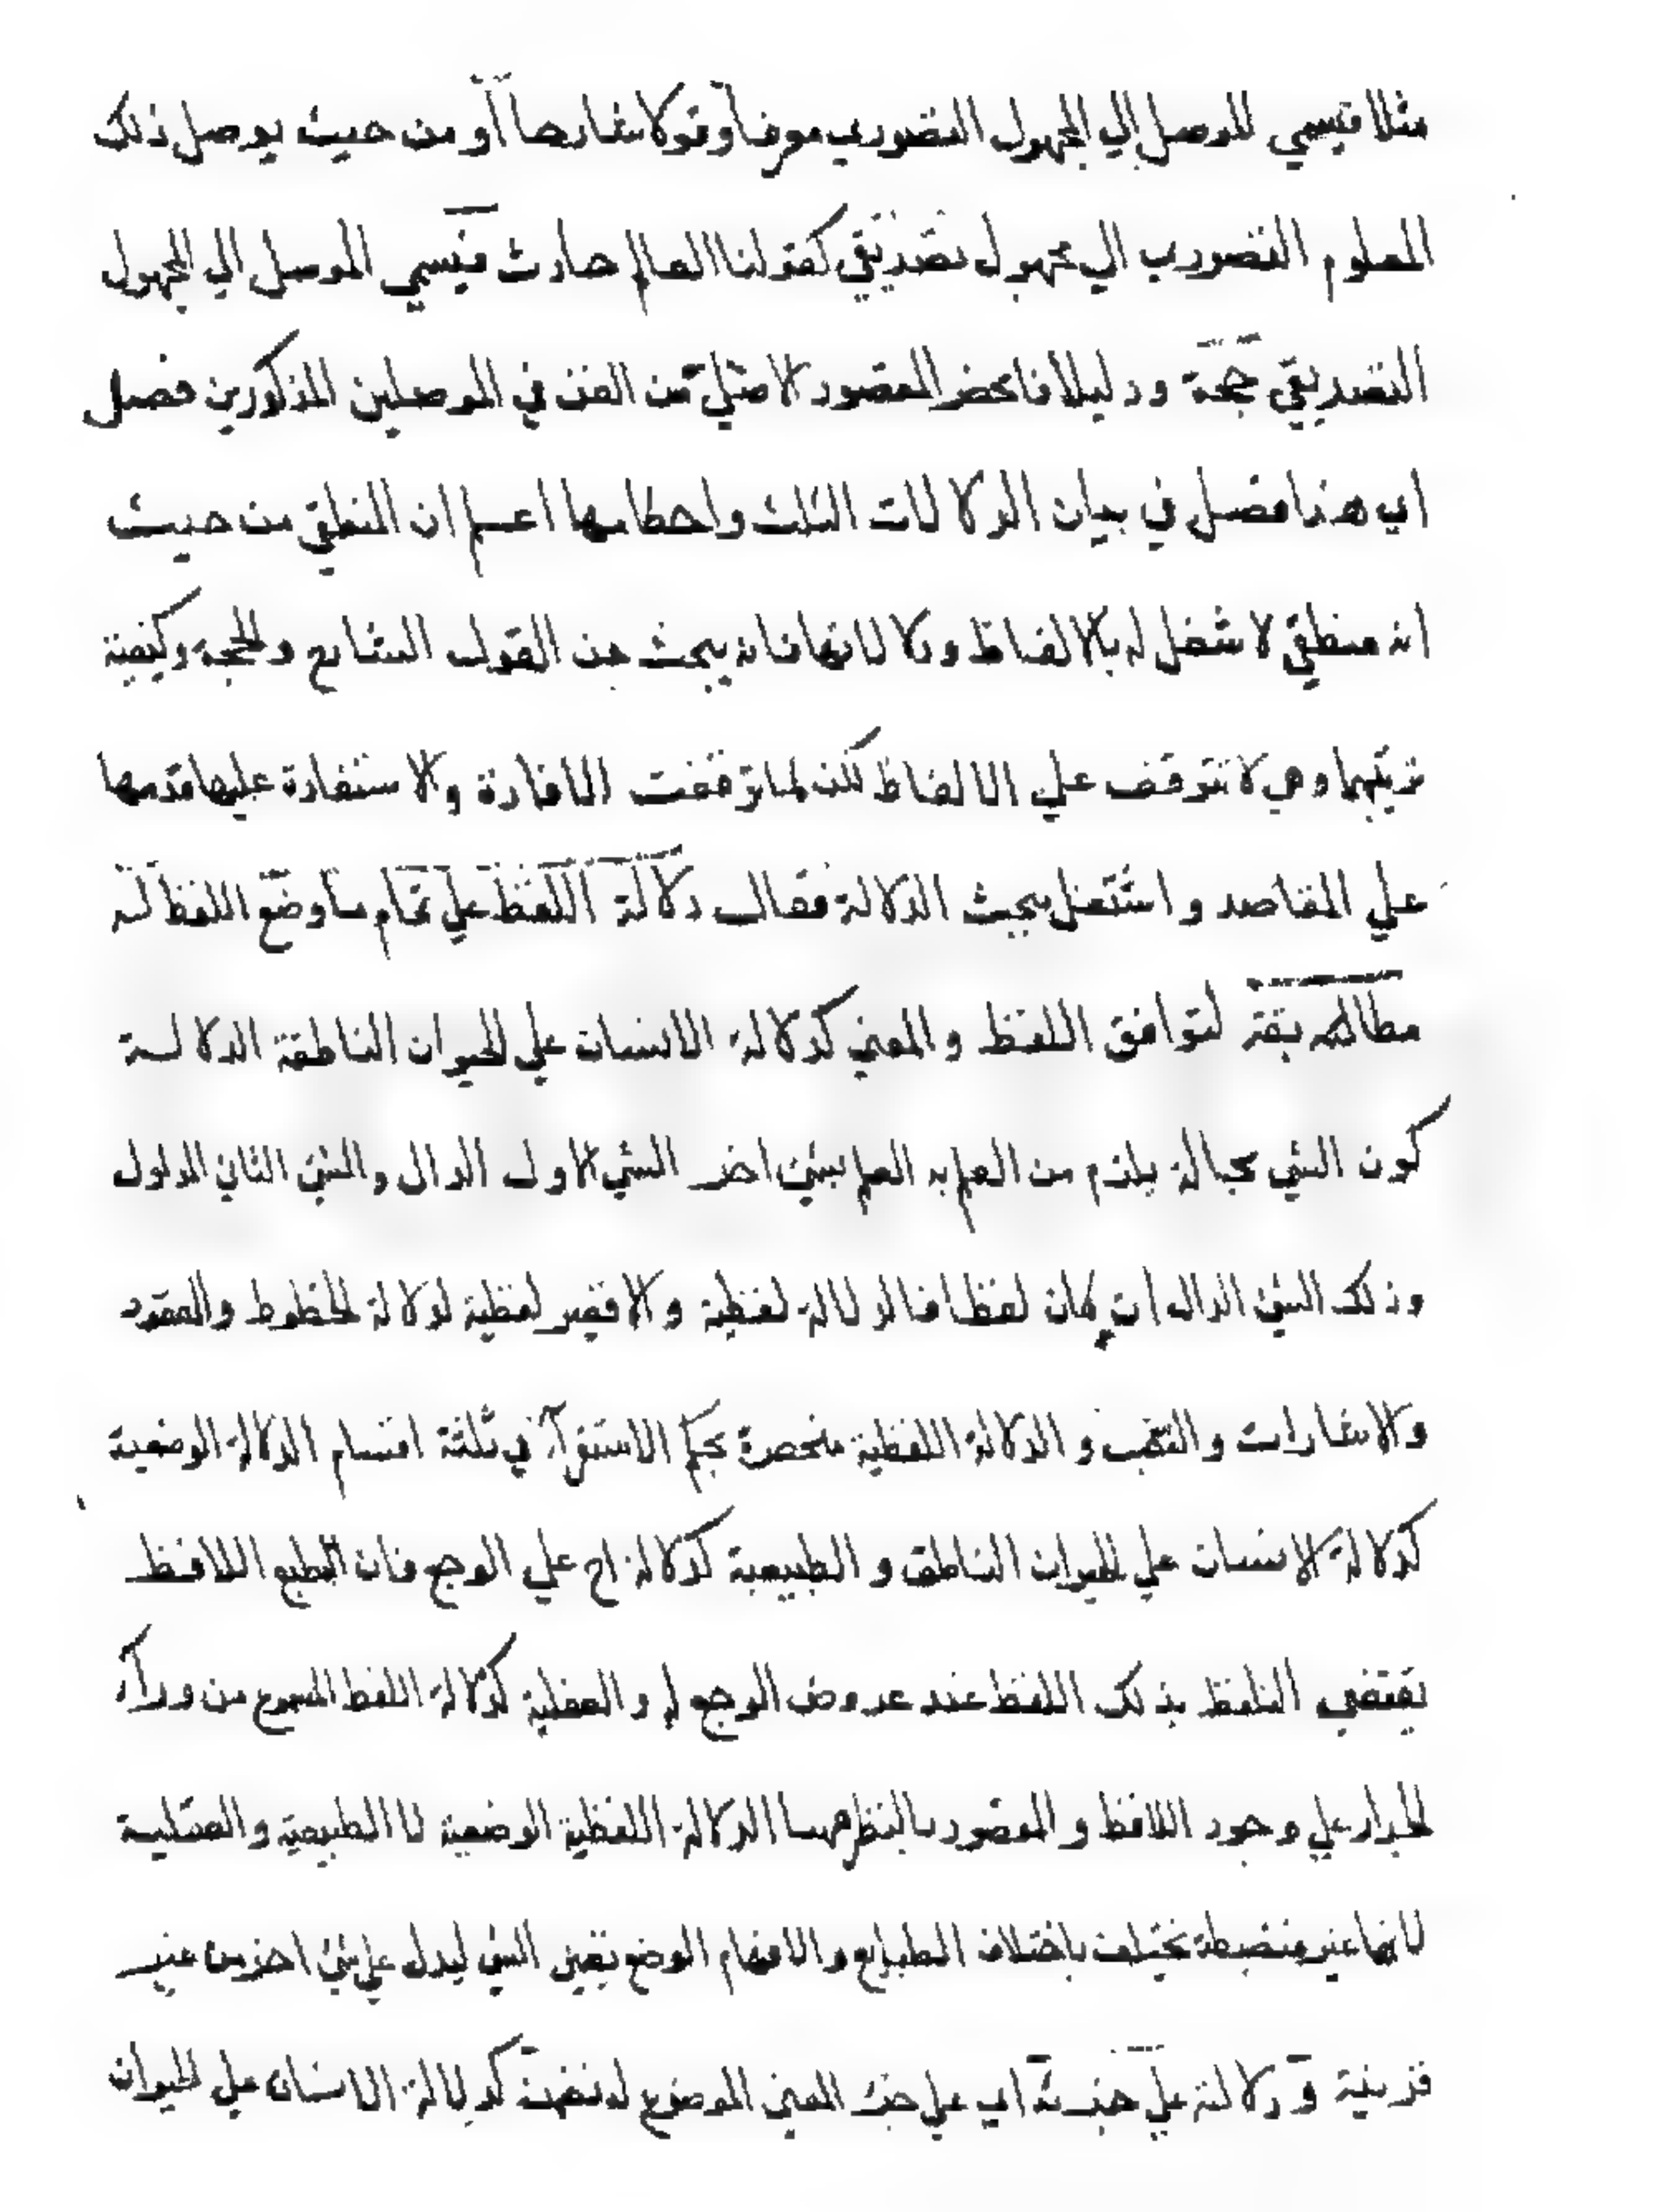 مثلا فيسمي الموصل الي المجهول التصوري معرفا وقولا شارحا أو من حيث يوصل ذلك
المعلوم التصوري الي مجهول تصديقي كقولنا العالم حادث فيسمي الموصل الي المجهول
التصديقي حجة ودليلا فانحصر المقصود الاصلي من الفن في الموصلين المذكورين فصل
اي هذا فصل في بيان الدلالات الثلث واحكامها اعلم ان المنطقي من حيث
انه منطقي لا شغل له بالالفاظ ودلالاتها فانه يبحث عن القول الشارح والحجة وكيفية
ترتيبهما وهي لا تتوقف علي الالفاظ لكن لما توقفت الافادة والاستفادة عليها قدمها
علي المقاصد واشتغل ببحث الدلالة فقال دلالة اللفظ علي تمام ما وضع اللفظ له
مطابقة لتوافق اللفظ والمعني كدلالة الانسان علي الحيوان الناطقة الدلالة
كون الشي بحالة يلزم من العلم به العلم بشئ اخر الشي الاول الدال والشئ الثاني المدلول
وذلك الشئ الدال ان كان لفظا فالدلالة لفظية والا فغير لفظية لدلالة الخطوط والعقود
والاشارات والنصب والدلالة اللفظية منحصرة بحكم الاستقرآء في ثلثة اقسام الدلالة الوضعية
كدلالة الانسان علي الحيوان الناطق والطبيعية كدلالة اح علي الوجع فان الطبع اللافظ
يقتضي التلفظ بذلك اللفظ عند عروض الوجع له والعقلية كدلالة اللفظ المسموع من ورآء
الجدار علي وجود اللافظ والمقصود بالنظر ههنا الدلالة اللفظية الوضعية لا الطبيعية والعقلية
لانهما غير منضبطة تختلف باختلاف الطبايع والافهام الوضع تعيين الشئ ليدل علي شئ اخر من غير
قرينية و دلالته علي جزئه اي علي جزء المعني الموضوع له تضمن كدلالة الانسان علي الحيوان